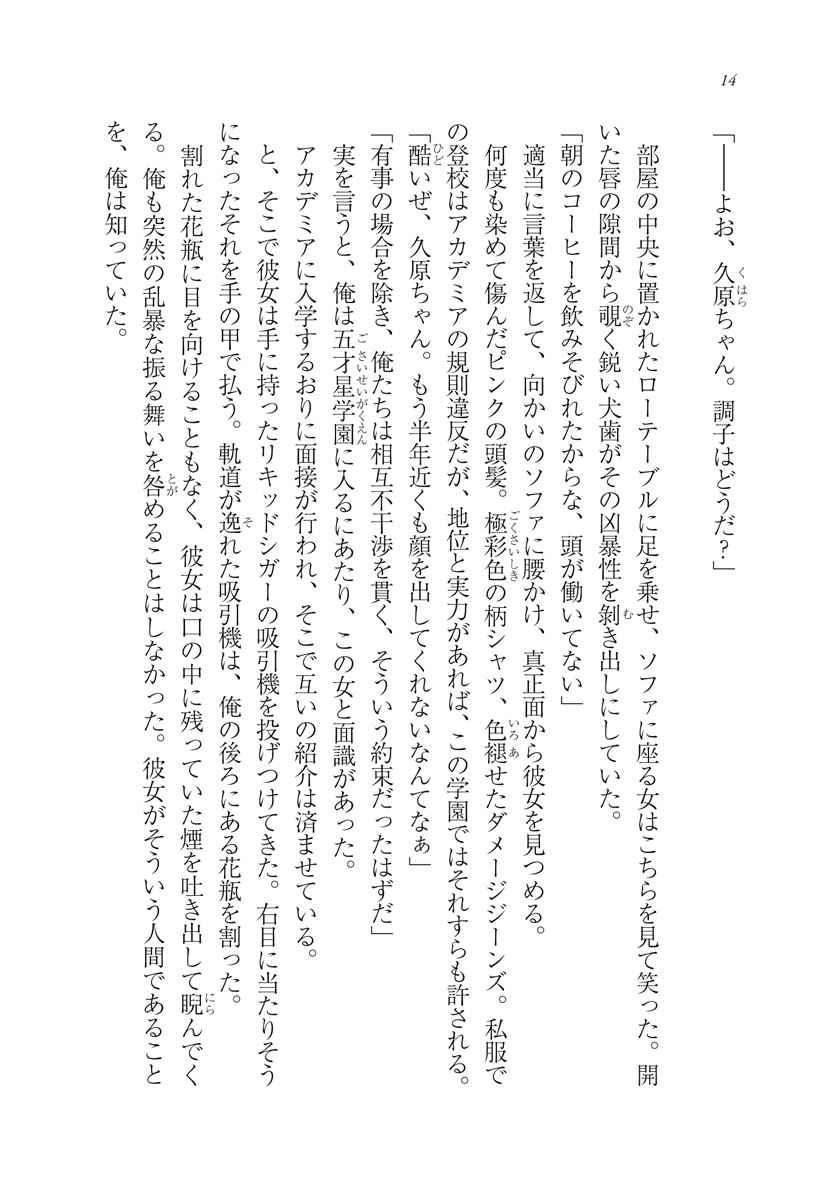 14
「――よお、久原ちゃん。調子はどうだ？」
部屋の中央に置かれたローテーブルに足を乗せ、ソファに座る女はこちらを見て笑った。開
いた唇の隙間から覗く鋭い犬歯がその凶暴性を剝き出しにしていた。
「朝のコーヒーを飲みそびれたからな、頭が働いてない」
適当に言葉を返して、向かいのソファに腰かけ、真正面から彼女を見つめる。
何度も染めて傷んだピンクの頭髪。極彩色の柄シャツ、色褪せたダメージジーンズ。私服で
の登校はアカデミアの規則違反だが、地位と実力があれば、この学園ではそれすらも許される。
「酷いぜ、久原ちゃん。もう半年近くも顔を出してくれないなんてなぁ」
「有事の場合を除き、俺たちは相互不干渉を貫く、そういう約束だったはずだ」
実を言うと、俺は五才星学園に入るにあたり、この女と面識があった。
アカデミアに入学するおりに面接が行われ、そこで互いの紹介は済ませている。
と、そこで彼女は手に持ったリキッドシガーの吸引機を投げつけてきた。右目に当たりそう
になったそれを手の甲で払う。軌道が逸れた吸引機は、俺の後ろにある花瓶を割った。
割れた花瓶に目を向けることもなく、彼女は口の中に残っていた煙を吐き出して睨んでく
る。俺も突然の乱暴な振る舞いを咎めることはしなかった。彼女がそういう人間であること
を、俺は知っていた。